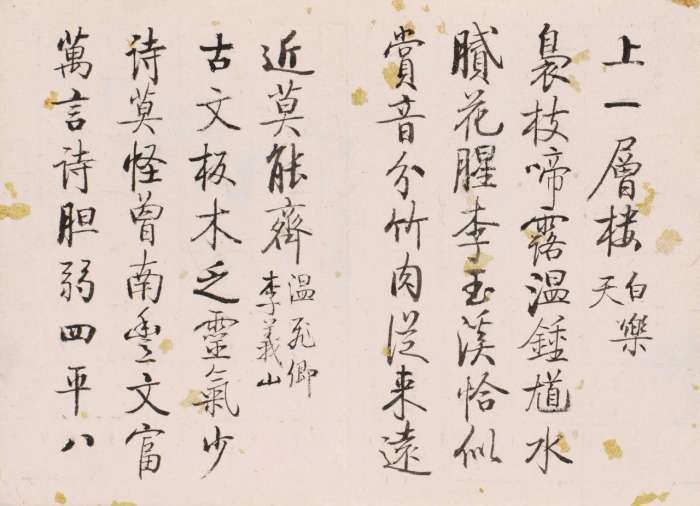 上一層楼白樂天
裊枝啼露温鍾馗水
膩花腥李玉溪恰似
賞音分竹肉從来遠
近莫能齊温飛卿李義山
古文板木乏靈氣少
诗莫怪曾南豐文富
萬言诗胆弱四平八